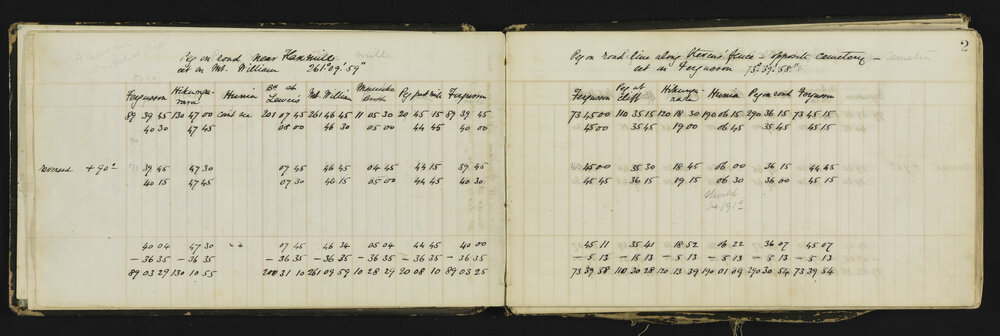 Peg on road near Flaxmill
set on Mt. William 261° 09' 59"
Ferguson Hikurangi Hunia BM at Lewers Mt. William Peg Ferguson
89 39 45 130 47 00 can't see 201 07 45 261 46 45 11 05 30 20 45 15 89 39 45
40 30 47 45 08 00 46 30 05 00 44 45 40 00
Reversed + 90° 39 45 47 30 07 45 46 45 04 45 44 15 39 45
40 15 47 45 07 30 46 15 05 00 44 45 40 30
40 04 47 30 " " 07 45 46 34 05 04 44 45 40 00
- 36 35 - 36 35 - 36 35 - 36 35 - 36 35 - 36 35 - 36 35
89 03 29 130 10 55 31 10 261 09 59 10 28 29 20 08 10 89 03 25
2
Peg on road line along fence - opposite cemetery -
set on Ferguson 73° 39' 58"
Ferguson Peg at Cliff Hunia Peg on road Ferguson
73 45 00 110 35 15 120 18 30 190 06 15 290 36 15 73 45 15
45 00 35 45 19 00 06 45 35 45 45 15
45 00 35 30 18 45 06 00 36 15 44 45
45 45 36 15 19 15 06 30 36 00 45 15
Should be 190°
45 11 35 41 18 52 06 22 36 07 45 07
- 5 13 - 5 13 - 5 13 - 5 13 - 5 13 - 5 13
73 39 58 110 30 28 120 13 39 190 01 09 290 30 54 73 39 54